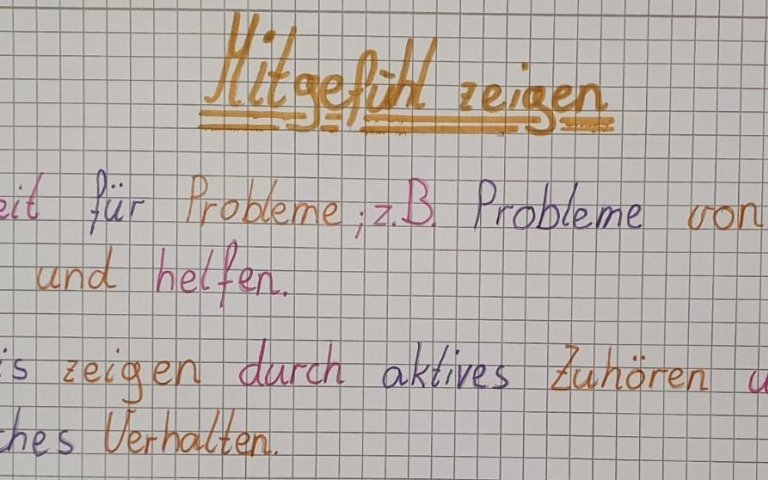 Mitgefühl zeigen
eit für Probleme; z.B. Probleme von
und helfen.
is zeigen durch aktives Zuhören u
ches Verhalten.